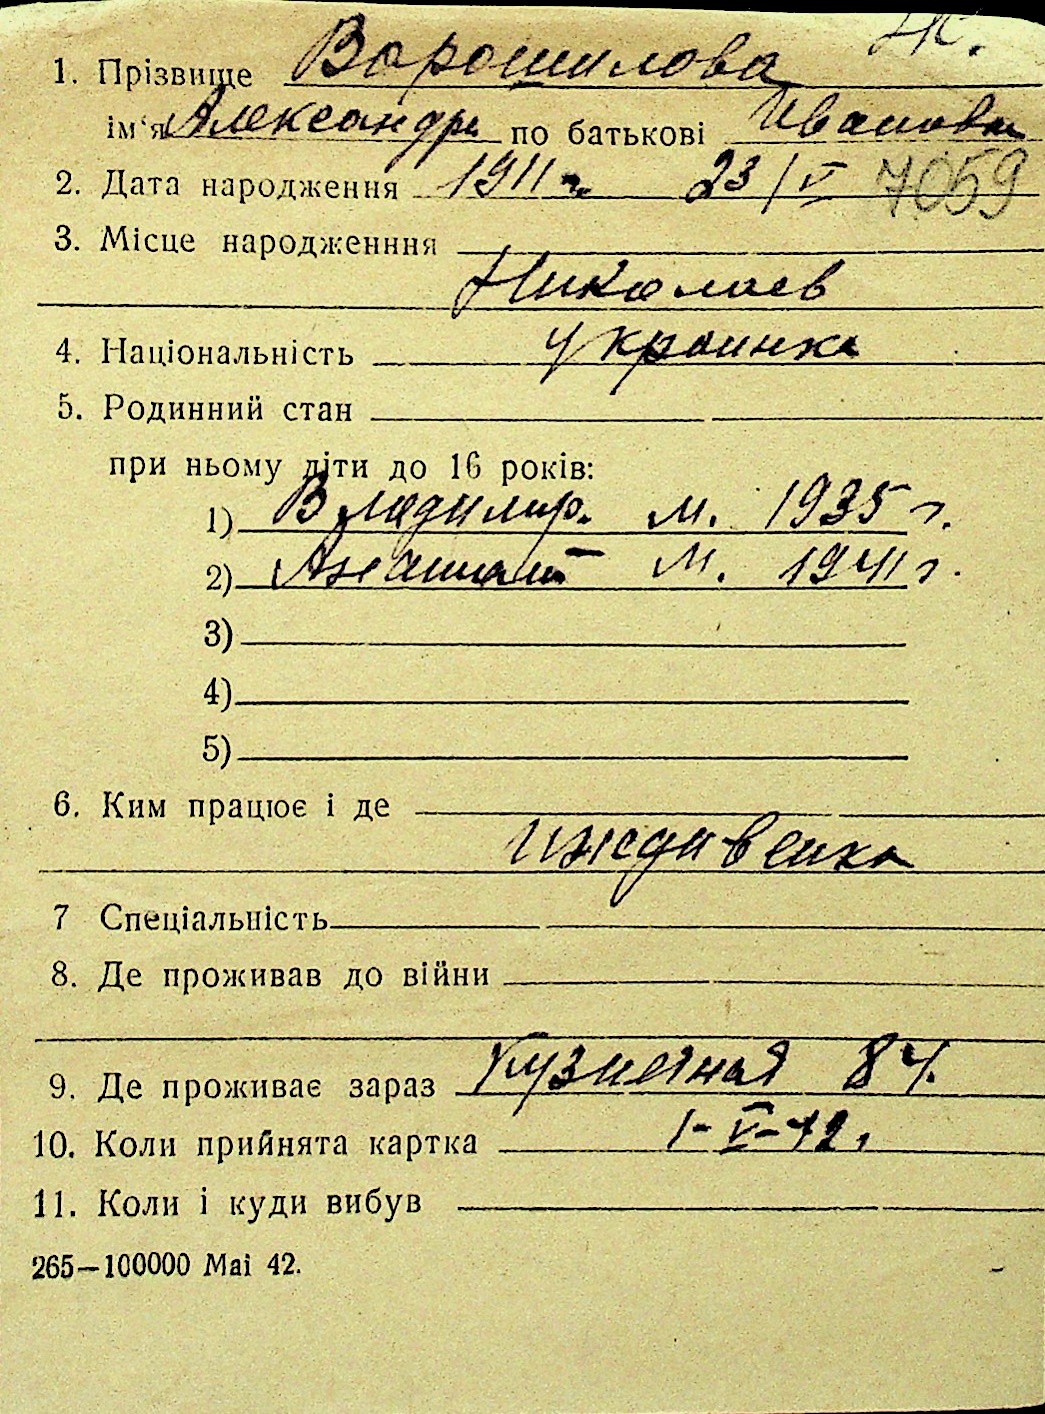 Ж.
1. Прізвище Ворошилова
ім‘я Александра по батькові Ивановна
2. Дата народження 1911 г. 23/V 7059
3. Місце народженння
Николаев
4. Національність украинка
5. Родинний стан
при ньому діти до 16 років:
1) Владимир. м. 1935 г.
2) м. 1941 г.
3)
4)
5)
6. Ким працює і де
иждивенка
7 Спеціальність
8. Де проживав до війни
9. Де проживає зараз Кузнечная 84.
10. Коли прийнята картка 1-V-42.
11. Коли і куди вибув
265—100000 Mai 42.